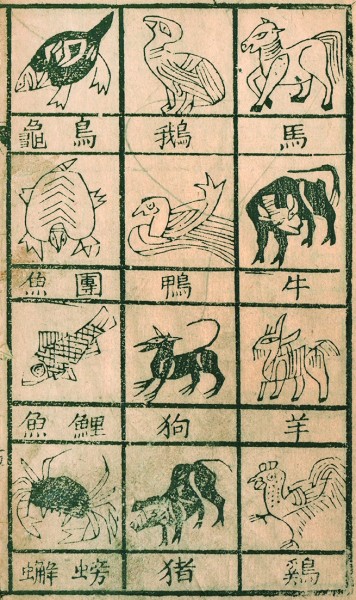 馬 鵝 烏龜
牛 鴨 團魚
羊 狗 鯉魚
鷄 猪 螃蠏